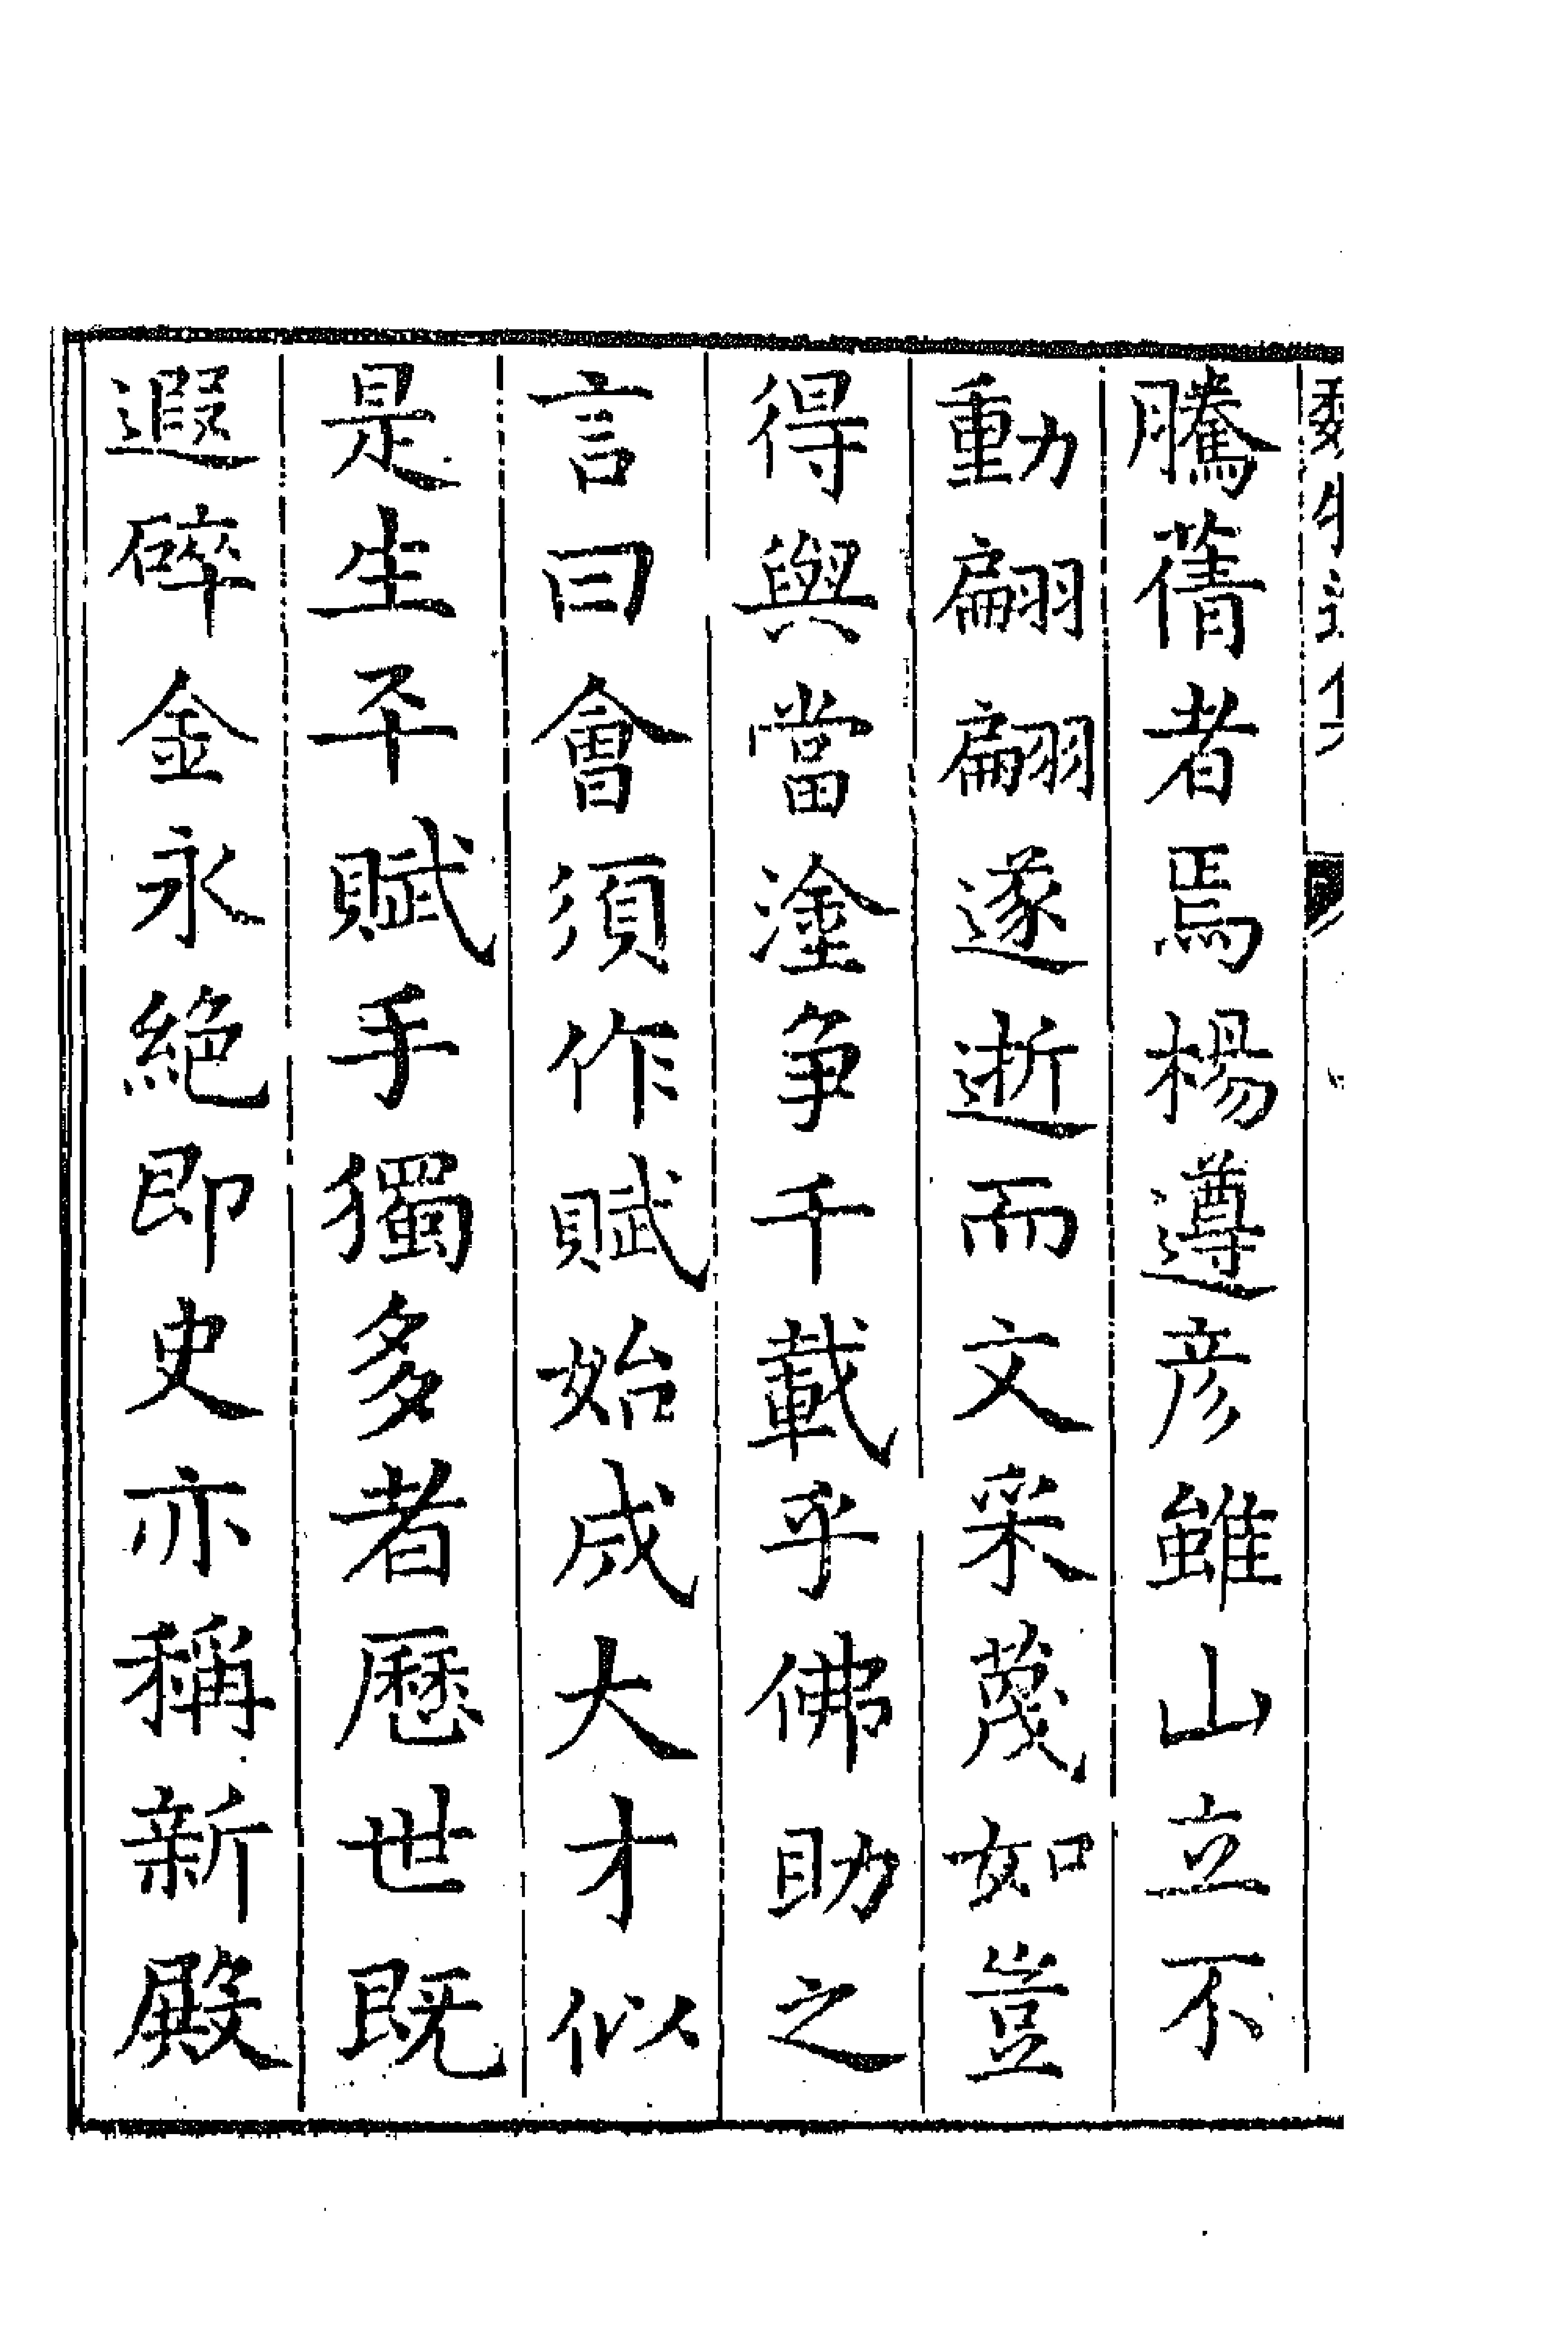 騰蒨者焉楊遵彦雖山立不
動翩翩遂逝而文采蔑如豈
得與當塗争千載乎佛助之
言曰會須作賦始成大才似
是生平賦手獨多者歷世既
遐碎金永絕即史亦稱新殿